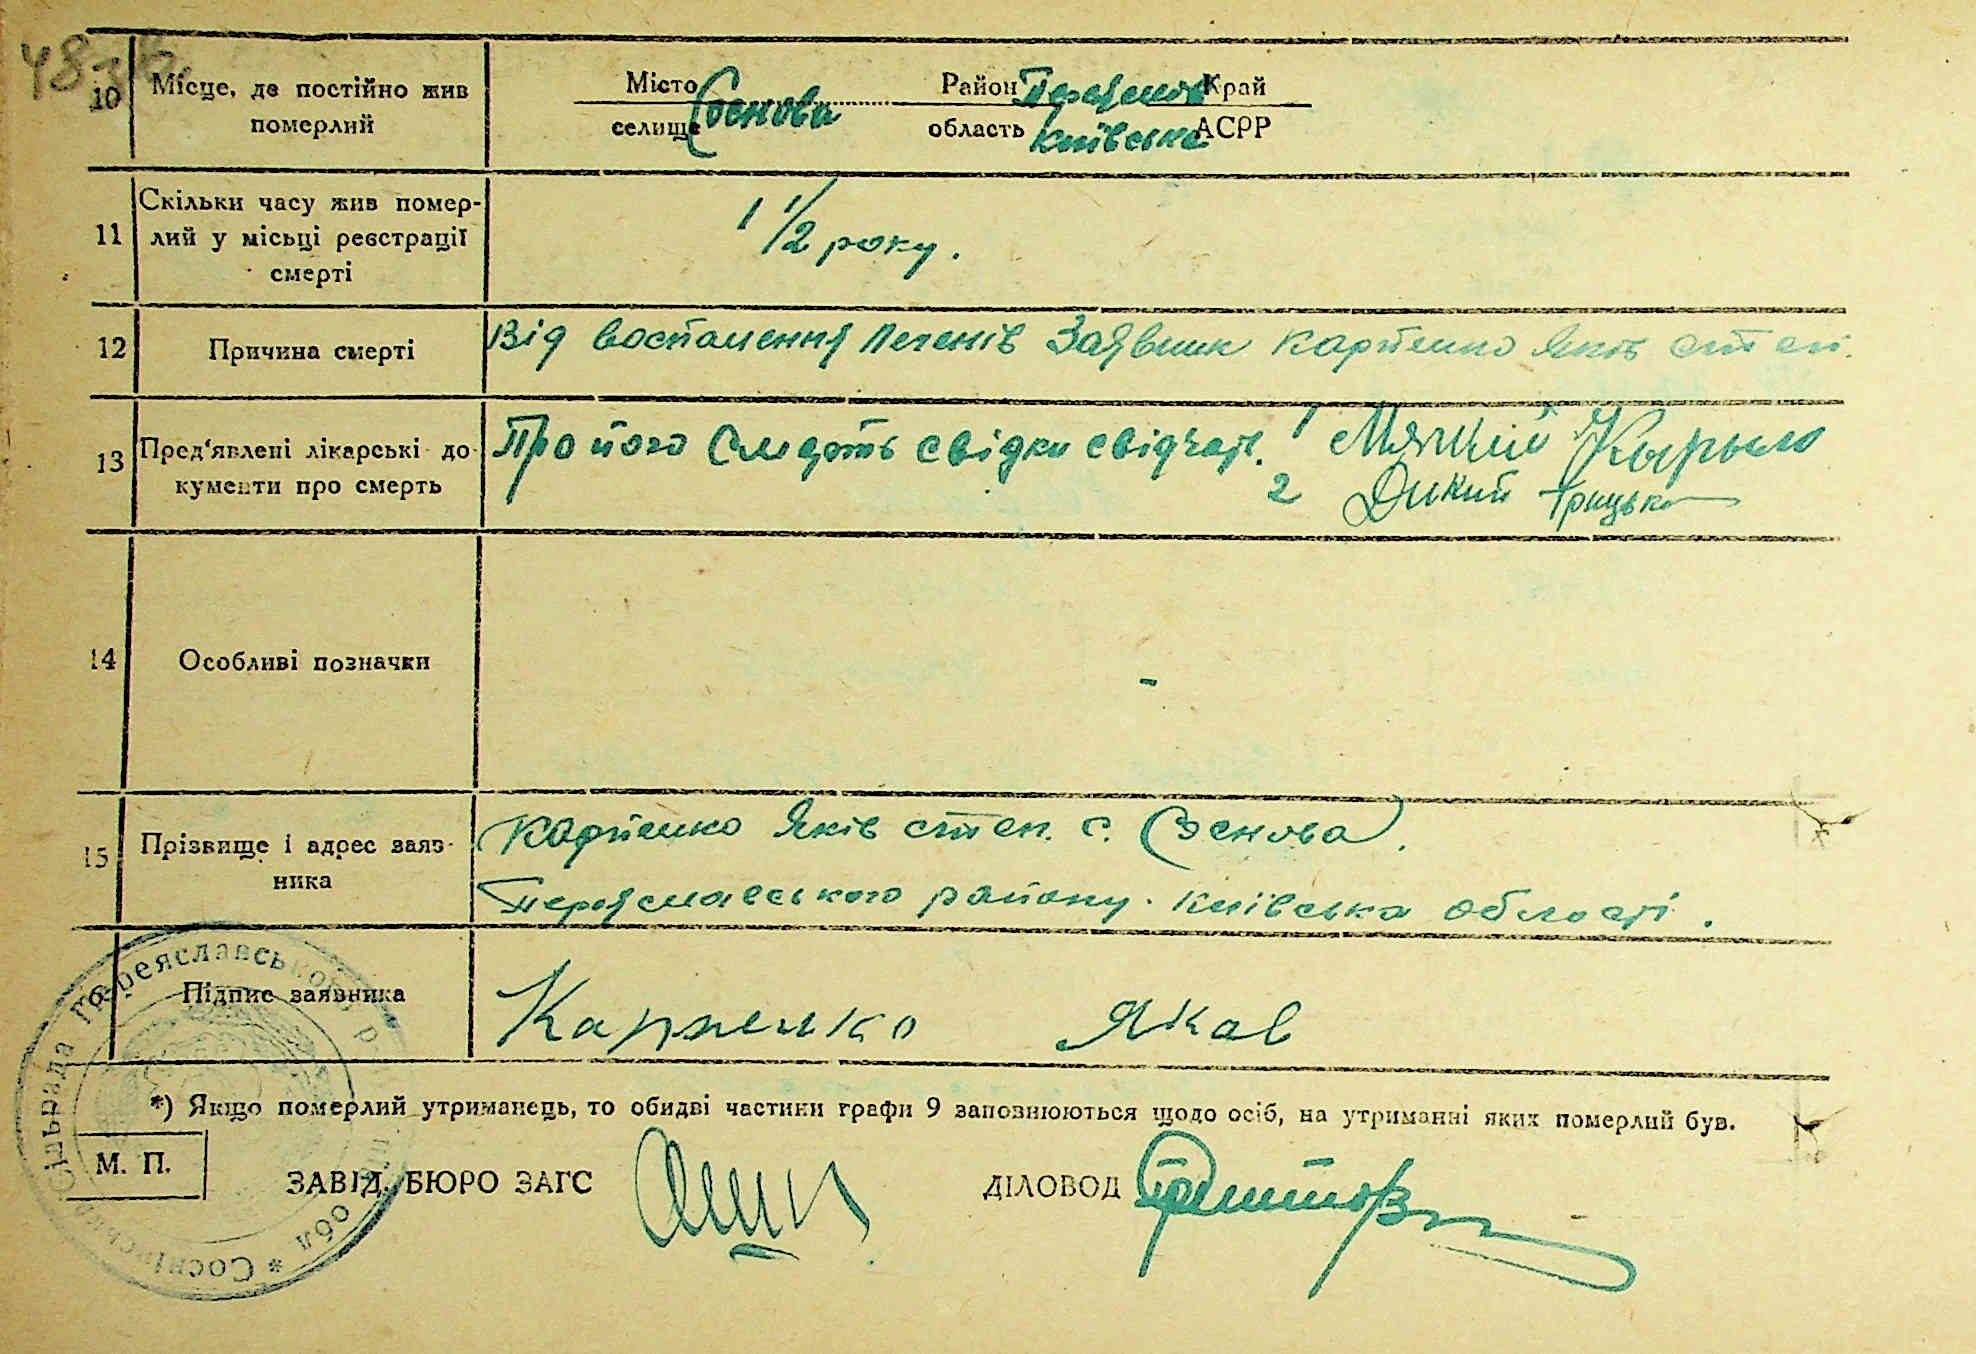 48
10 Місце, де постійно жив
померлий
Місто Соснова Район Переяслов Край
селище область Київська АСРР
11 Скільки часу жив помер-
лий у місьці реєстрації
смерті
1 1/2 року.
12 Причина смерті
Від воспаления печенів Заявник Карпенко Яків степ.
13 Пред'явлені лікарські до-
кументи про смерть
Про його смерть свідки свідчать. 1 Мягкий Кырыло
2 Дикий Грицько
14 Особливі позначки
-
15 Прізвище і адрес заяв-
ника
Карпенко Яків степ. с. Соснова.
Переяславського району. Київська області.
16 Підпис заявника
Карпенко Яков
*) Якщо померлий утриманець, то обидві частини графи 9 заповнюються щодо осіб, на утриманні яких померлий був.
М. П.
ЗАВІД. БЮРО ЗАГС ДІЛОВОД
Соснівська Сільрада Переяславського р обл *